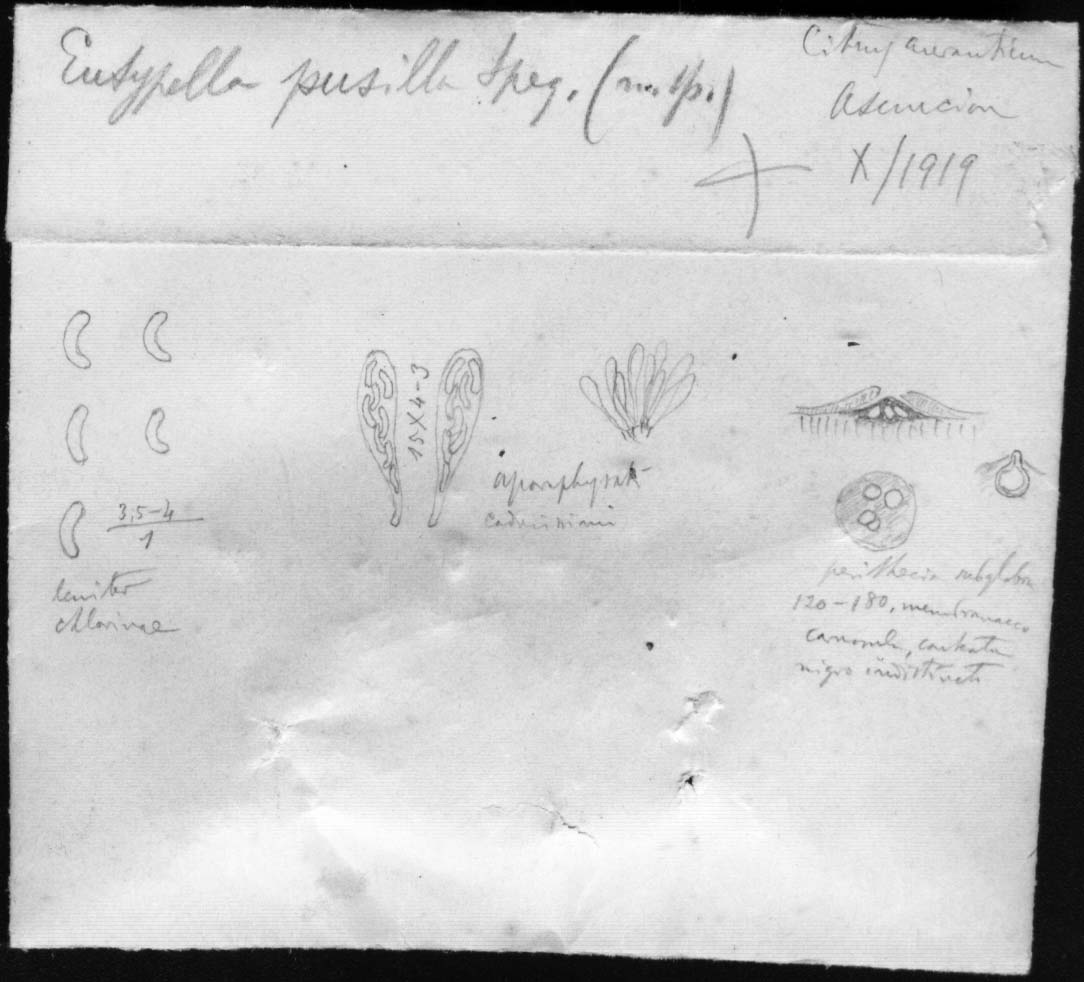 Eutypella pusilla Speg. (n. sp.)
Citrus aurantium
Asuncion
X/1919
15 X 4-3
3,5-4
1
leniter
chlorinae
aparaphysati
perithecia subglobosa
120-180, membranaceo
nigro